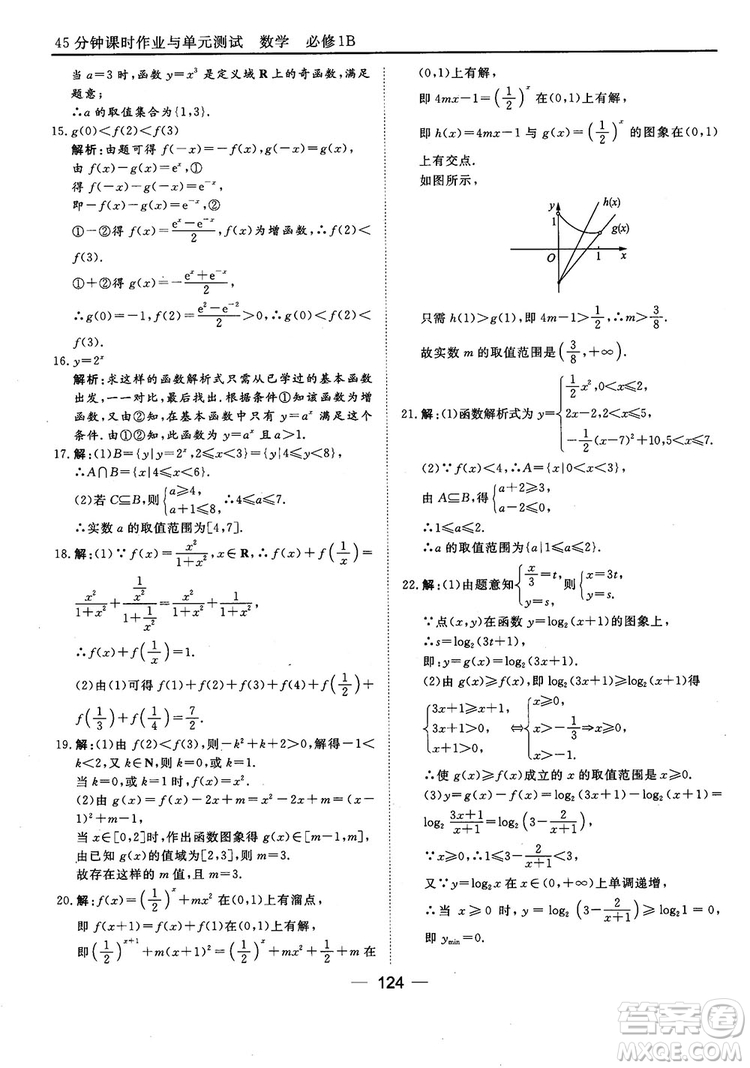 45分钟课时作业与单元测试　数学　必修1B
当 a=3 时,函数 y=x³ 是定义域 R 上的奇函数,满足
题意;
∴a 的取值集合为{1,3}.
15. g(0)<f(2)<f(3)
解析:由题可得 f(-x)=-f(x),g(-x)=g(x),
由 f(x)-g(x)=eˣ,①
得 f(-x)-g(-x)=e⁻ˣ,
即-f(x)-g(x)=e⁻ˣ,②
①-②得 f(x)=(eˣ-e⁻ˣ)/2,f(x)为增函数,∴f(2)<
f(3).
①+②得 g(x)=-(eˣ+e⁻ˣ)/2,
∴g(0)=-1,f(2)=(e²-e⁻²)/2>0,∴g(0)<f(2)<
f(3).
16. y=2ˣ
解析:求这样的函数解析式只需从已学过的基本函数
出发,一一对照,最后找出来.根据条件①知该函数为增
函数,又从②知,在基本函数中只有 y=aˣ 满足这个
条件.由①知,此函数为 y=aˣ 且 a>1.
17. 解:(1)B={y|y=2ˣ,2≤x≤3}={y|4≤y≤8},
∴A∩B={x|4≤x≤6}.
(2)若 C⊆B,则{a≥4, a+1≤8. ∴4≤a≤7.
∴实数 a 的取值范围为[4,7].
18. 解:(1)∵f(x)=x²/(1+x²),x∈R,∴f(x)+f(1/x)=
x²/(1+x²)+(1/x²)/(1+1/x²)=x²/(1+x²)+1/(1+x²)=1.
∴f(x)+f(1/x)=1.
(2)由(1)可得 f(1)+f(2)+f(3)+f(4)+f(1/2)+
f(1/3)+f(1/4)=7/2.
19. 解:(1)由 f(2)<f(3),得-k²+k+2>0,解得-1<
k<2,又 k∈N,则 k=0,1.
当 k=0,1 时,f(x)=x².
(2)由 g(x)=f(x)-2x+m=x²-2x+m=(x-
1)²+m-1,
当 x∈[0,2]时,作出函数图象得 g(x)∈[m-1,m],
由已知 g(x)的值域为[2,3],则 m=3.
故存在这样的 m,且 m=3.
20. 解:f(x)=(1/2)ˣ+mx²在(0,1)上有溜点,
即 f(x+1)=f(x)+f(1)在(0,1)上有解,
即(1/2)ˣ⁺¹+m(x+1)²=(1/2)ˣ+mx²+1/2+m 在
(0,1)上有解,
即 4mx-1=(1/2)ˣ在(0,1)上有解,
即 h(x)=4mx-1 与 g(x)=(1/2)ˣ的图象在(0,1)
上有交点.
如图所示,
y
h(x)
1
g(x)
O
1
x
只需 h(1)>g(1),即 4m-1>1/2,∴m>3/8.
故实数 m 的取值范围是(3/8,+∞).
21. 解:(1)函数解析式为 y={1/2x²,0<x≤2, 2x-2,2<x≤5, -1/2(x-7)²+10,5<x≤7.
(2)∵f(x)<4,∴A={x|0<x<3}.
由 A⊆B,得{a+2≥3, a-2≤0.
∴1≤a≤2.
∴a 的取值范围为{a|1≤a≤2}.
22. 解:(1)由题意知{x/3=t, y=s, 则{x=3t, y=s.
∵点(x,y)在函数 y=log₂(x+1)的图象上,
∴s=log₂(3t+1),
即:y=g(x)=log₂(3x+1).
(2)由 g(x)≥f(x)得 log₂(3x+1)≥log₂(x+1)
⇒{3x+1≥x+1, 3x+1>0, x+1>0 ⇔{x≥0, x>-1/3, x>-1 ⇒x≥0,
∴使 g(x)≥f(x)成立的 x 的取值范围是 x≥0.
(3)y=g(x)-f(x)=log₂(3x+1)-log₂(x+1)=
log₂(3x+1)/(x+1)=log₂(3-2/(x+1)).
∵x≥0,
又∵y=log₂(3-2/(x+1))在 x>0 上单调递增,
∴当 x≥0 时,log₂(3-2/(x+1))≥log₂(3-2)=0,
即 yₘᵢₙ=0.
124
MXQE.COM